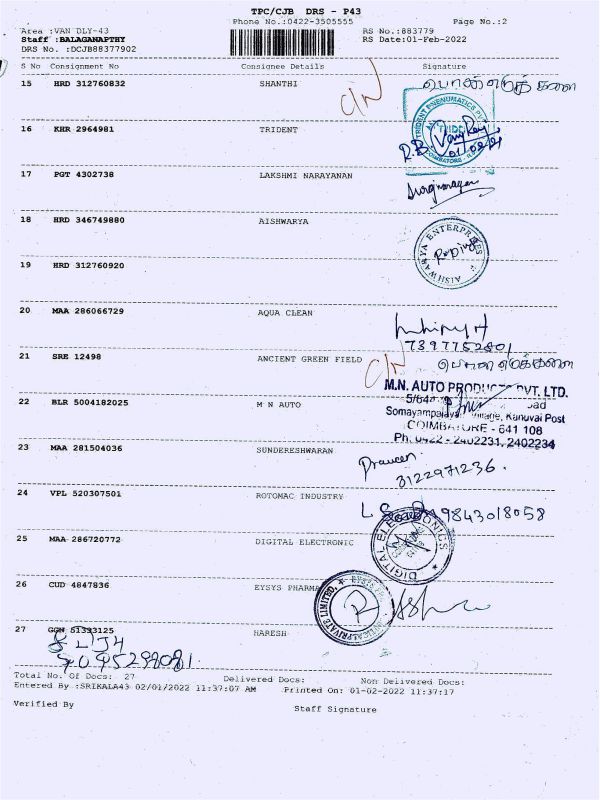 TPC/CJB DRS - P43
Phone No.:0422-3505555 Page No.:2
Area :VAN DLY-43 RS No.:883779
Staff :BALAGANAPTHY RS Date:01-Feb-2022
DRS No. :DCJB88377902
S No Consignment No Consignee Details Signature
15 HRD 312760832 SHANTHI C/N
16 KHR 2964981 TRIDENT
TRIDENT PNEUMATICS PVT
COIMBATORE
17 PGT 4302738 LAKSHMI NARAYANAN
18 HRD 346749880 AISHWARYA
AISHWARYA ENTERPRISES
19 HRD 312760920
20 MAA 286066729 AQUA CLEAN
7397752801
21 SRE 12498 ANCIENT GREEN FIELD C/N
22 BLR 5004182025 M N AUTO
M.N. AUTO PRODUCTS PVT. LTD.
5/64
Somayampalayam Village, Kanuvai Post
COIMBATORE - 641 108
Ph: 0422 - 2402231, 2402234
23 MAA 281504036 SUNDERESHWARAN
Praveen
8122971236.
24 VPL 520307501 ROTOMAC INDUSTRY
9843018058
25 MAA 286720772 DIGITAL ELECTRONIC
DIGITAL ELECTRONICS
26 CUD 4847836 EYSYS PHARMA
27 GGN 51393125 HARESH
Total No. Of Docs: 27 Delivered Docs: Non Delivered Docs:
Entered By :SRIKALA43 02/01/2022 11:37:07 AM Printed On: 01-02-2022 11:37:17
Verified By Staff Signature